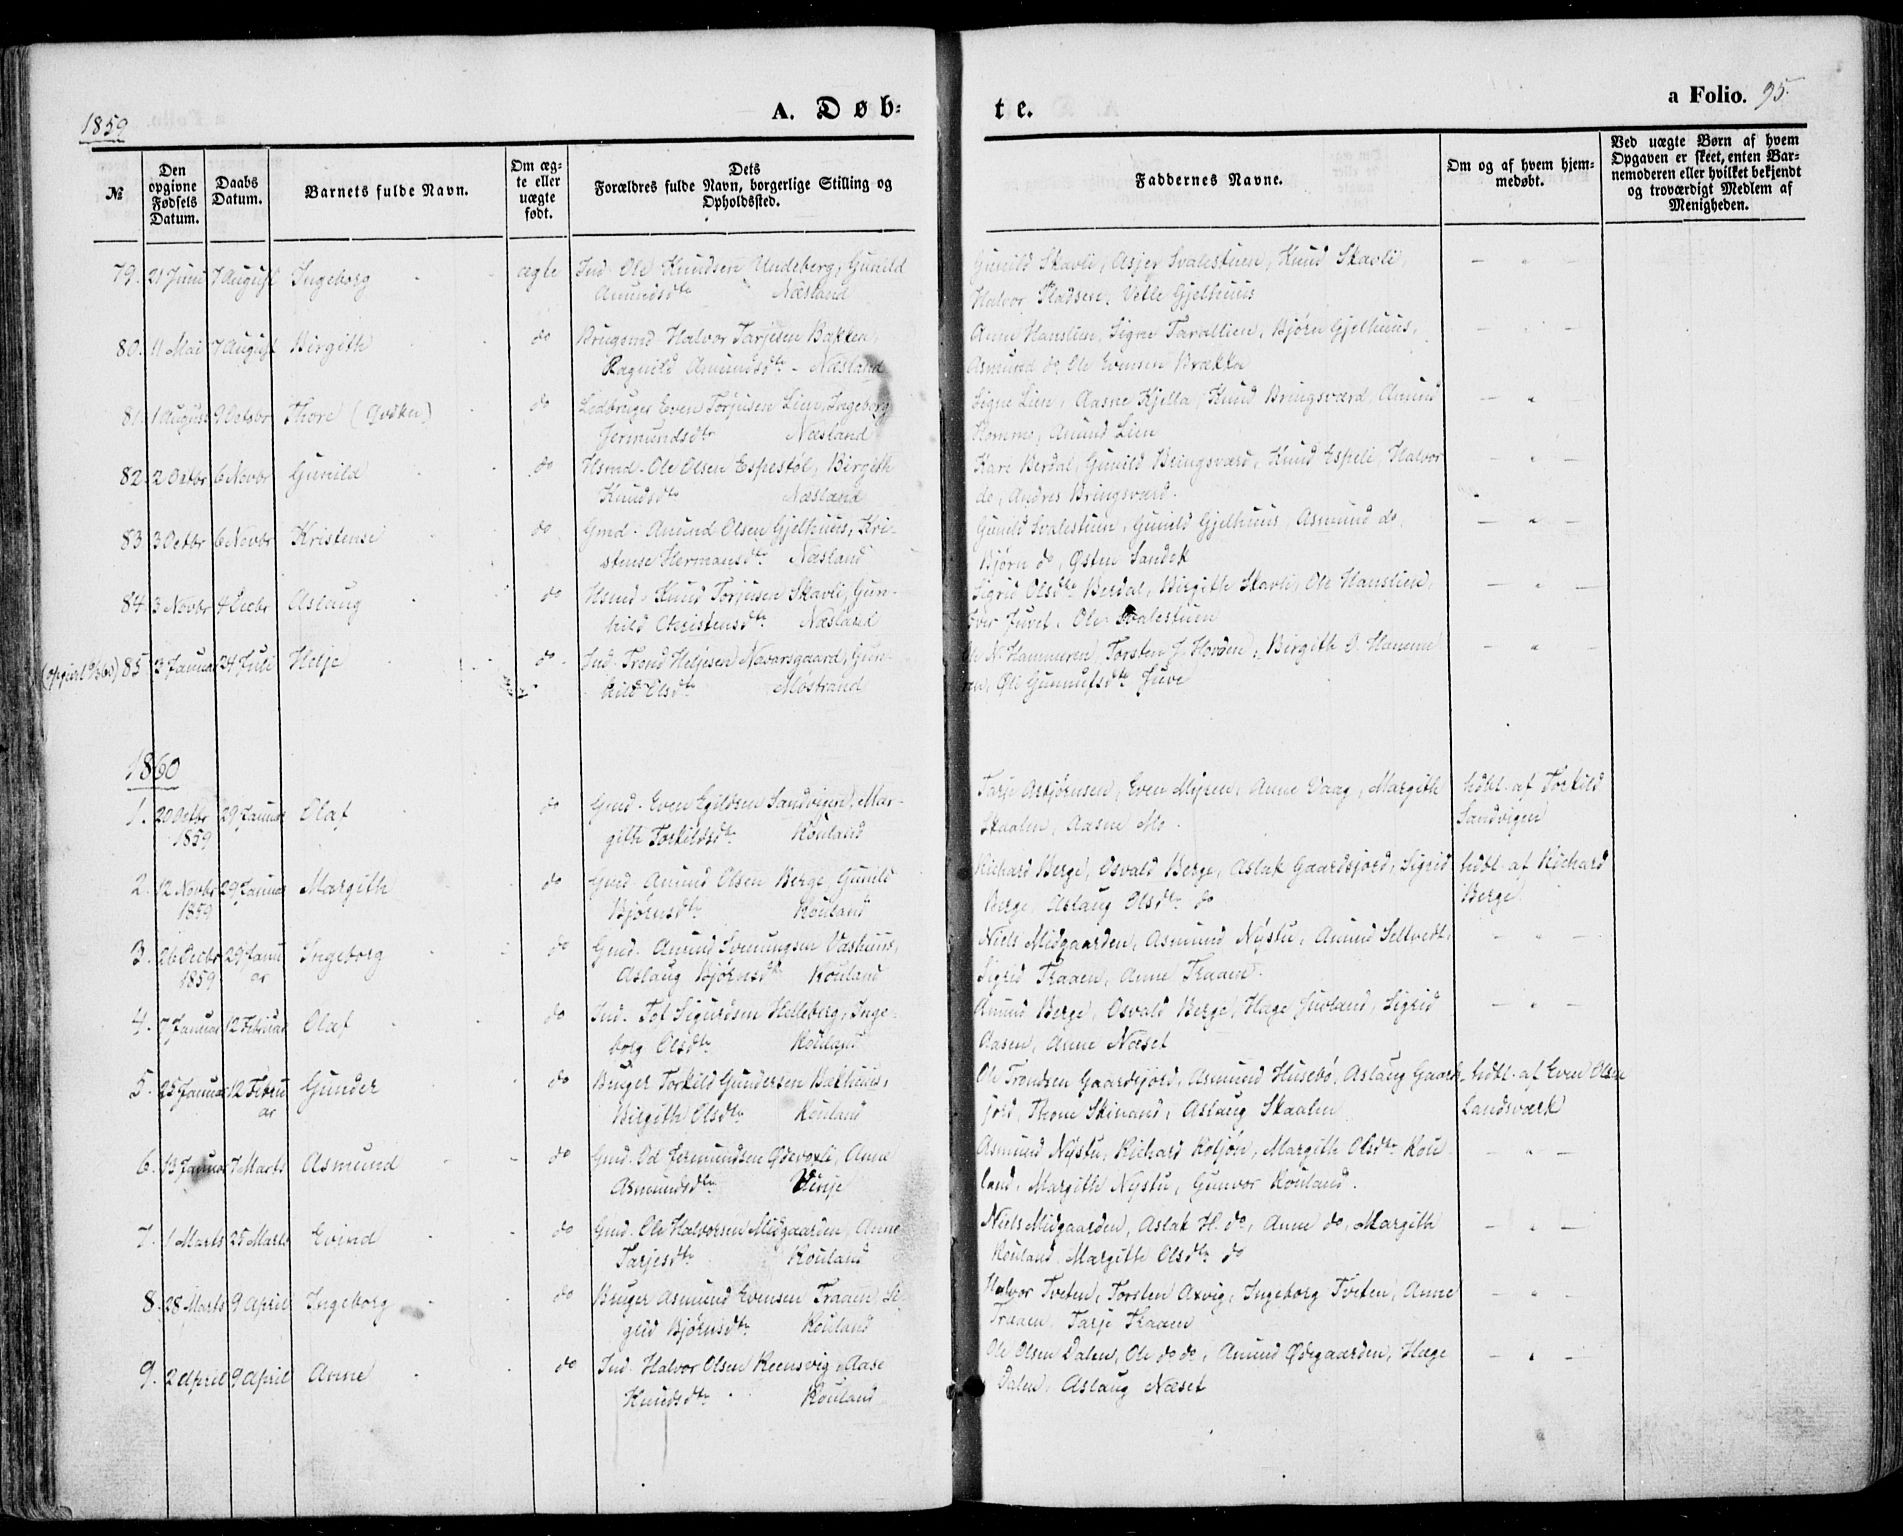 1859
A. Døb:
te.
a Folio. 95.
№
Den opgivne Fødsels Datum.
Daabs Datum.
Barnets fulde Navn.
Om ægte eller uægte født.
Dets Forældres fulde Navn, borgerlige Stilling og Opholdssted.
Faddernes Navne.
Om og af hvem hjemmedøbt.
Ved uægte Børn af hvem Opgaven er skeet, enten Barnemoderen eller hvilket bekjendt og troværdigt Medlem af Menigheden.
79. 21 Juni 7 August Ingeborg ægte Ind. Ole Knudsen Undeberg, Gunild Gunild Skavli, Asjer Svalestuen, Knud Skavli,
Amundsdtr Næsland Halvor Pladsen, Vetle Gjelhuus
80. 11 Mai 7 August Birgith do Brugsmd Halvor Tarjesen Bakken, Anne Hanslien, Signe Tarallien, Bjørn Gjelhuus,
Ragnild Amundsdtr - Næsland Asmund do, Ole Evensen Brække
81. 1 August 9 Octbr Thore do Even Torjusen Lien, Ingeborg Signe Lien, Aasne Kjella, Knud Bringsværd, Amund
Jermundsdtr Næsland Homme, Amund Lien
82. 2 Octbr 6 Novbr Gunild do Husmd. Ole Olsen Espestøl, Birgith Kari Berdal, Gunild Bringsværd, Knud Espeli, Halvor
Knudsdtr Næsland do, Andres Bringsværd.
83 3 Octbr 6 Novbr Kristense do Gmd. Anund Olsen Gjelhuus, Kri- Gunild Svalestuen, Gunild Gjelhuus, Asmund do,
stense Hermansdtr Næsland Bjørn do, Østen Sandok
84 3 Novbr 4 Decbr Aslaug do Husmd. Knud Torjusen Skavli, Gun- Sigrid Olsdtr Berdal, Birgith Skavli, Ole Hanslien,
hild Christensdtr Næsland Iver Juvet, Ole Svalestuen
85 3 Januar 24 Juli Helje do Ind. Trond Heljesen Navarsgaard, Gun- Ole N. Hammeren, Torsten J. Hovden, Birgith O. Hamme
hild Olsdtr Møstrand ren, Øli Gunnufsdtr Juve
1860
1. 20 Octbr 29 Januar Olaf do Gmd. Even Egildsen Sandvigen, Mar- Tarje Asbjørnsen, Even Myren, Anne Vaag, Margith hdbt. af Torkild
1859 gith Torkildsdtr Rouland Skaalen, Aasne Mo. Sandvigen
2. 12 Novbr 29 Januar Margith do Gmd. Anund Olsen Berge, Gunild Richard Berge, Osvald Berge, Aslak Gaardsjord, Sigrid hdbt. af Richard
1859 Bjørnsdtr Rouland Berge, Aslaug Olsdtr do Berge
3. 26 Decbr 29 Janu Ingeborg do Gmd. Anund Sveinungsen Vashuus, Niels Midgaarden, Asmund Nystu, Anund Seltvedt,
1859 ar Aslaug Bjørnsdtr Rouland Sigrid Traaen, Anne Traaen.
4. 7 Januar 12 Februar Olaf do Ind. Tol Sigurdsen Helleberg, Inge- Anund Berge, Osvald Berge, Hæge Juvland, Sigrid
borg Olsdtr Rouland Aasen, Anne Næset
5. 25 Januar 12 Febru Gunder do Bruger Torkild Gundersen Bakhuus, Ole Trondsen Gaardsjord, Asmund Husebø, Aslaug Gaards hdbt. af Even Olsen
ar Birgith Olsdtr Rouland jord, Thone Skinand, Aslaug Skaalen Landsværk
6. 13 Januar 7 Marts Asmund do Gmd. Od Jermundsen Ødevoxli, Anne Asmund Nystu, Richard Roljon, Margith Olsdtr Rou
Asmundsdtr Vinje land, Margith Nystu, Gunvor Rouland.
7. 1 Marts 25 Marts Evind do Gmd. Ole Halvorsen Midgaarden, Anne Niels Midgaarden, Aslak H. do, Anne do, Margith
Tarjesdtr Rouland Rouland, Margith Olsdtr do
8. 28 Marts 9 April Ingeborg do Bruger Asmund Evensen Traaen, Si- Halvor Tveten, Torsten Axvig, Ingeborg Tveten, Anne
grid Bjørnsdtr Rouland Traaen, Tarje Traaen
9. 2 April 9 April Anne do Ind. Halvor Olsen Reensvig, Aase Ole Olsen Dalen, Ole do do, Anund Ødegaarden, Hæge
Knudsdtr Rouland Dalen, Aslaug Næset